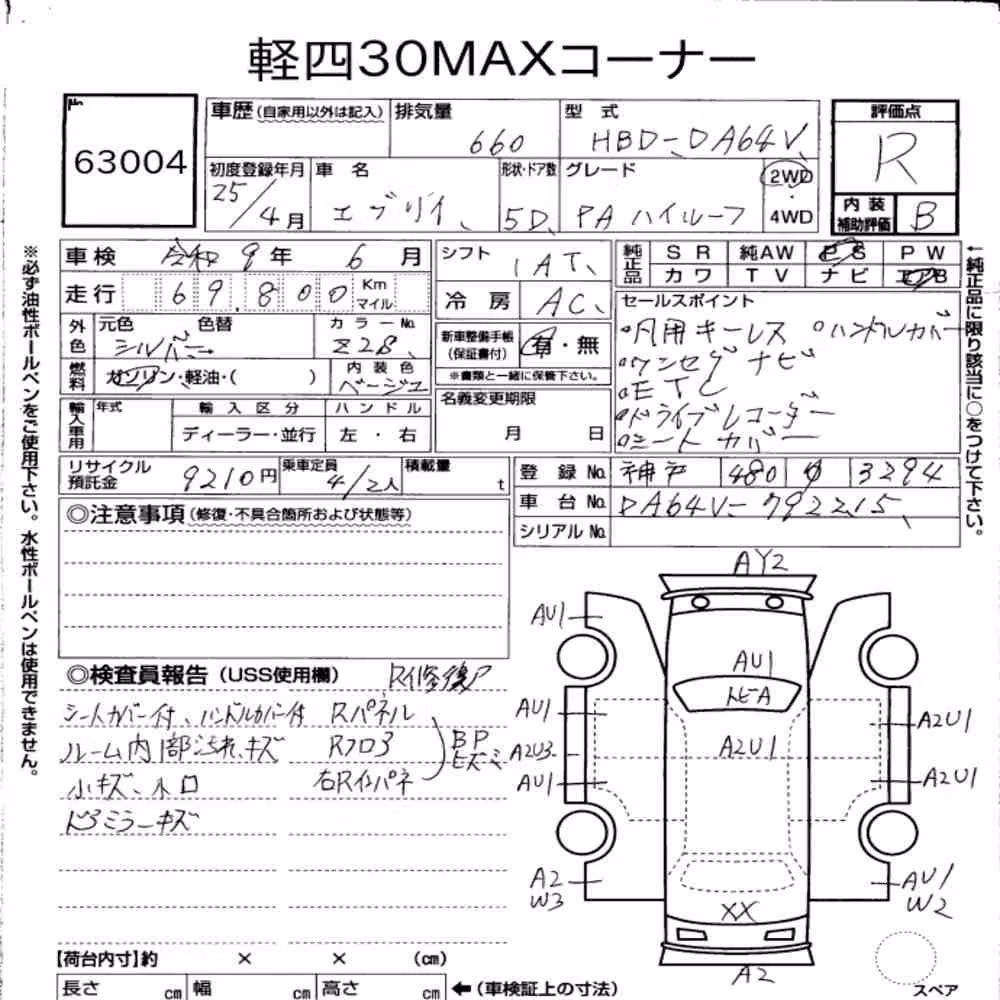 軽四30MAXコーナー
63004
車歴(自家用以外は記入) 排気量 660 型式 HBD-DA64V
評価点 R
初度登録年月 25/4月 車名 エブリイ 形状・ドア数 5D グレード PA ハイルーフ 2WD・4WD
内装補助評価 B
車検 令和 9年 6月 シフト IAT
走行 69,800 Km マイル 冷房 AC
純正品 SR 純AW PS PW
カワ TV ナビ エアB
外色 元色 シルバー 色替 カラーNo. Z2S
新車整備手帳(保証書付) 有・無
※書類と一緒に保管下さい。
燃料 ガソリン・軽油・( ) 内装色 ベージュ
セールスポイント
○汎用キーレス ○ハンドルカバー
○ワンセグナビ
○ETC
○ドライブレコーダー
○シートカバー
輸入車用 年式 輸入区分 ハンドル
ディーラー・並行 左・右
名義変更期限 月 日
リサイクル預託金 9210円 乗車定員 4/2人 積載量 t
登録No. 神戸 480 3294
車台No. DA64V-792215
シリアルNo.
◎注意事項(修復・不具合箇所および状態等)
◎検査員報告(USS使用欄) R修復
シートカバー付、ハンドルカバー付 Rパネル
ルーム内部汚れ、キズ Rフロア BP ヒズミ
小キズ、小凹 右Rインパネ
ドアミラーキズ
AY2
AU1
AU1
トビA
AU1
A2U1
A2U3
A2U1
AU1
A2U1
A2
W3
AU1
W2
XX
A2
スペア
【荷台内寸】約 × × (cm)
長さ cm 幅 cm 高さ cm ←(車検証上の寸法)
※必ず油性ボールペンをご使用下さい。水性ボールペンは使用できません。
←純正品に限り該当に○をつけて下さい。